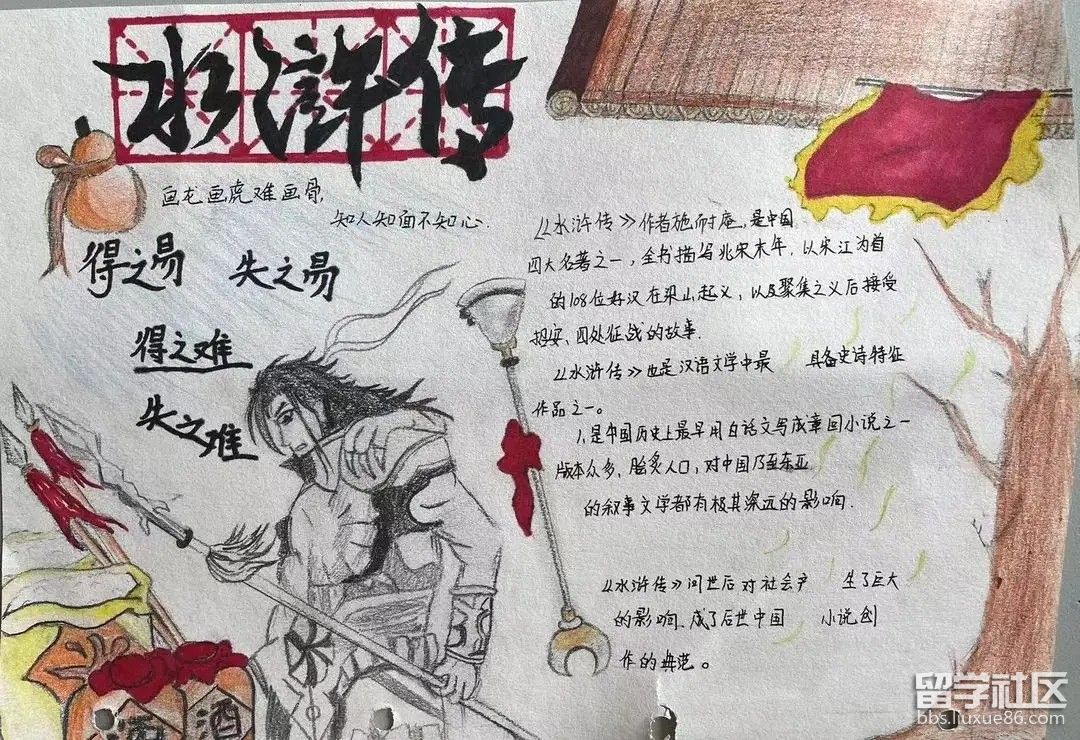 水浒传
画龙画虎难画骨,
知人知面不知心.
得之易 失之易
得之难
失之难
《水浒传》作者施耐庵,是中国
四大名著之一,全书描写北宋末年,以宋江为首
的108位好汉在梁山起义,以及聚集之义后接受
招安、四处征战的故事.
《水浒传》也是汉语文学中最 具备史诗特征
作品之一。
1.是中国历史上最早用白话文写成章回小说之一
版本众多、脍炙人口,对中国乃至东亚
的叙事文学都有极其深远的影响.
《水浒传》问世后对社会产 生了巨大
的影响.成了后世中国 小说创
作的典范。
酒
酒
留学社区
bbs.liuxue86.com